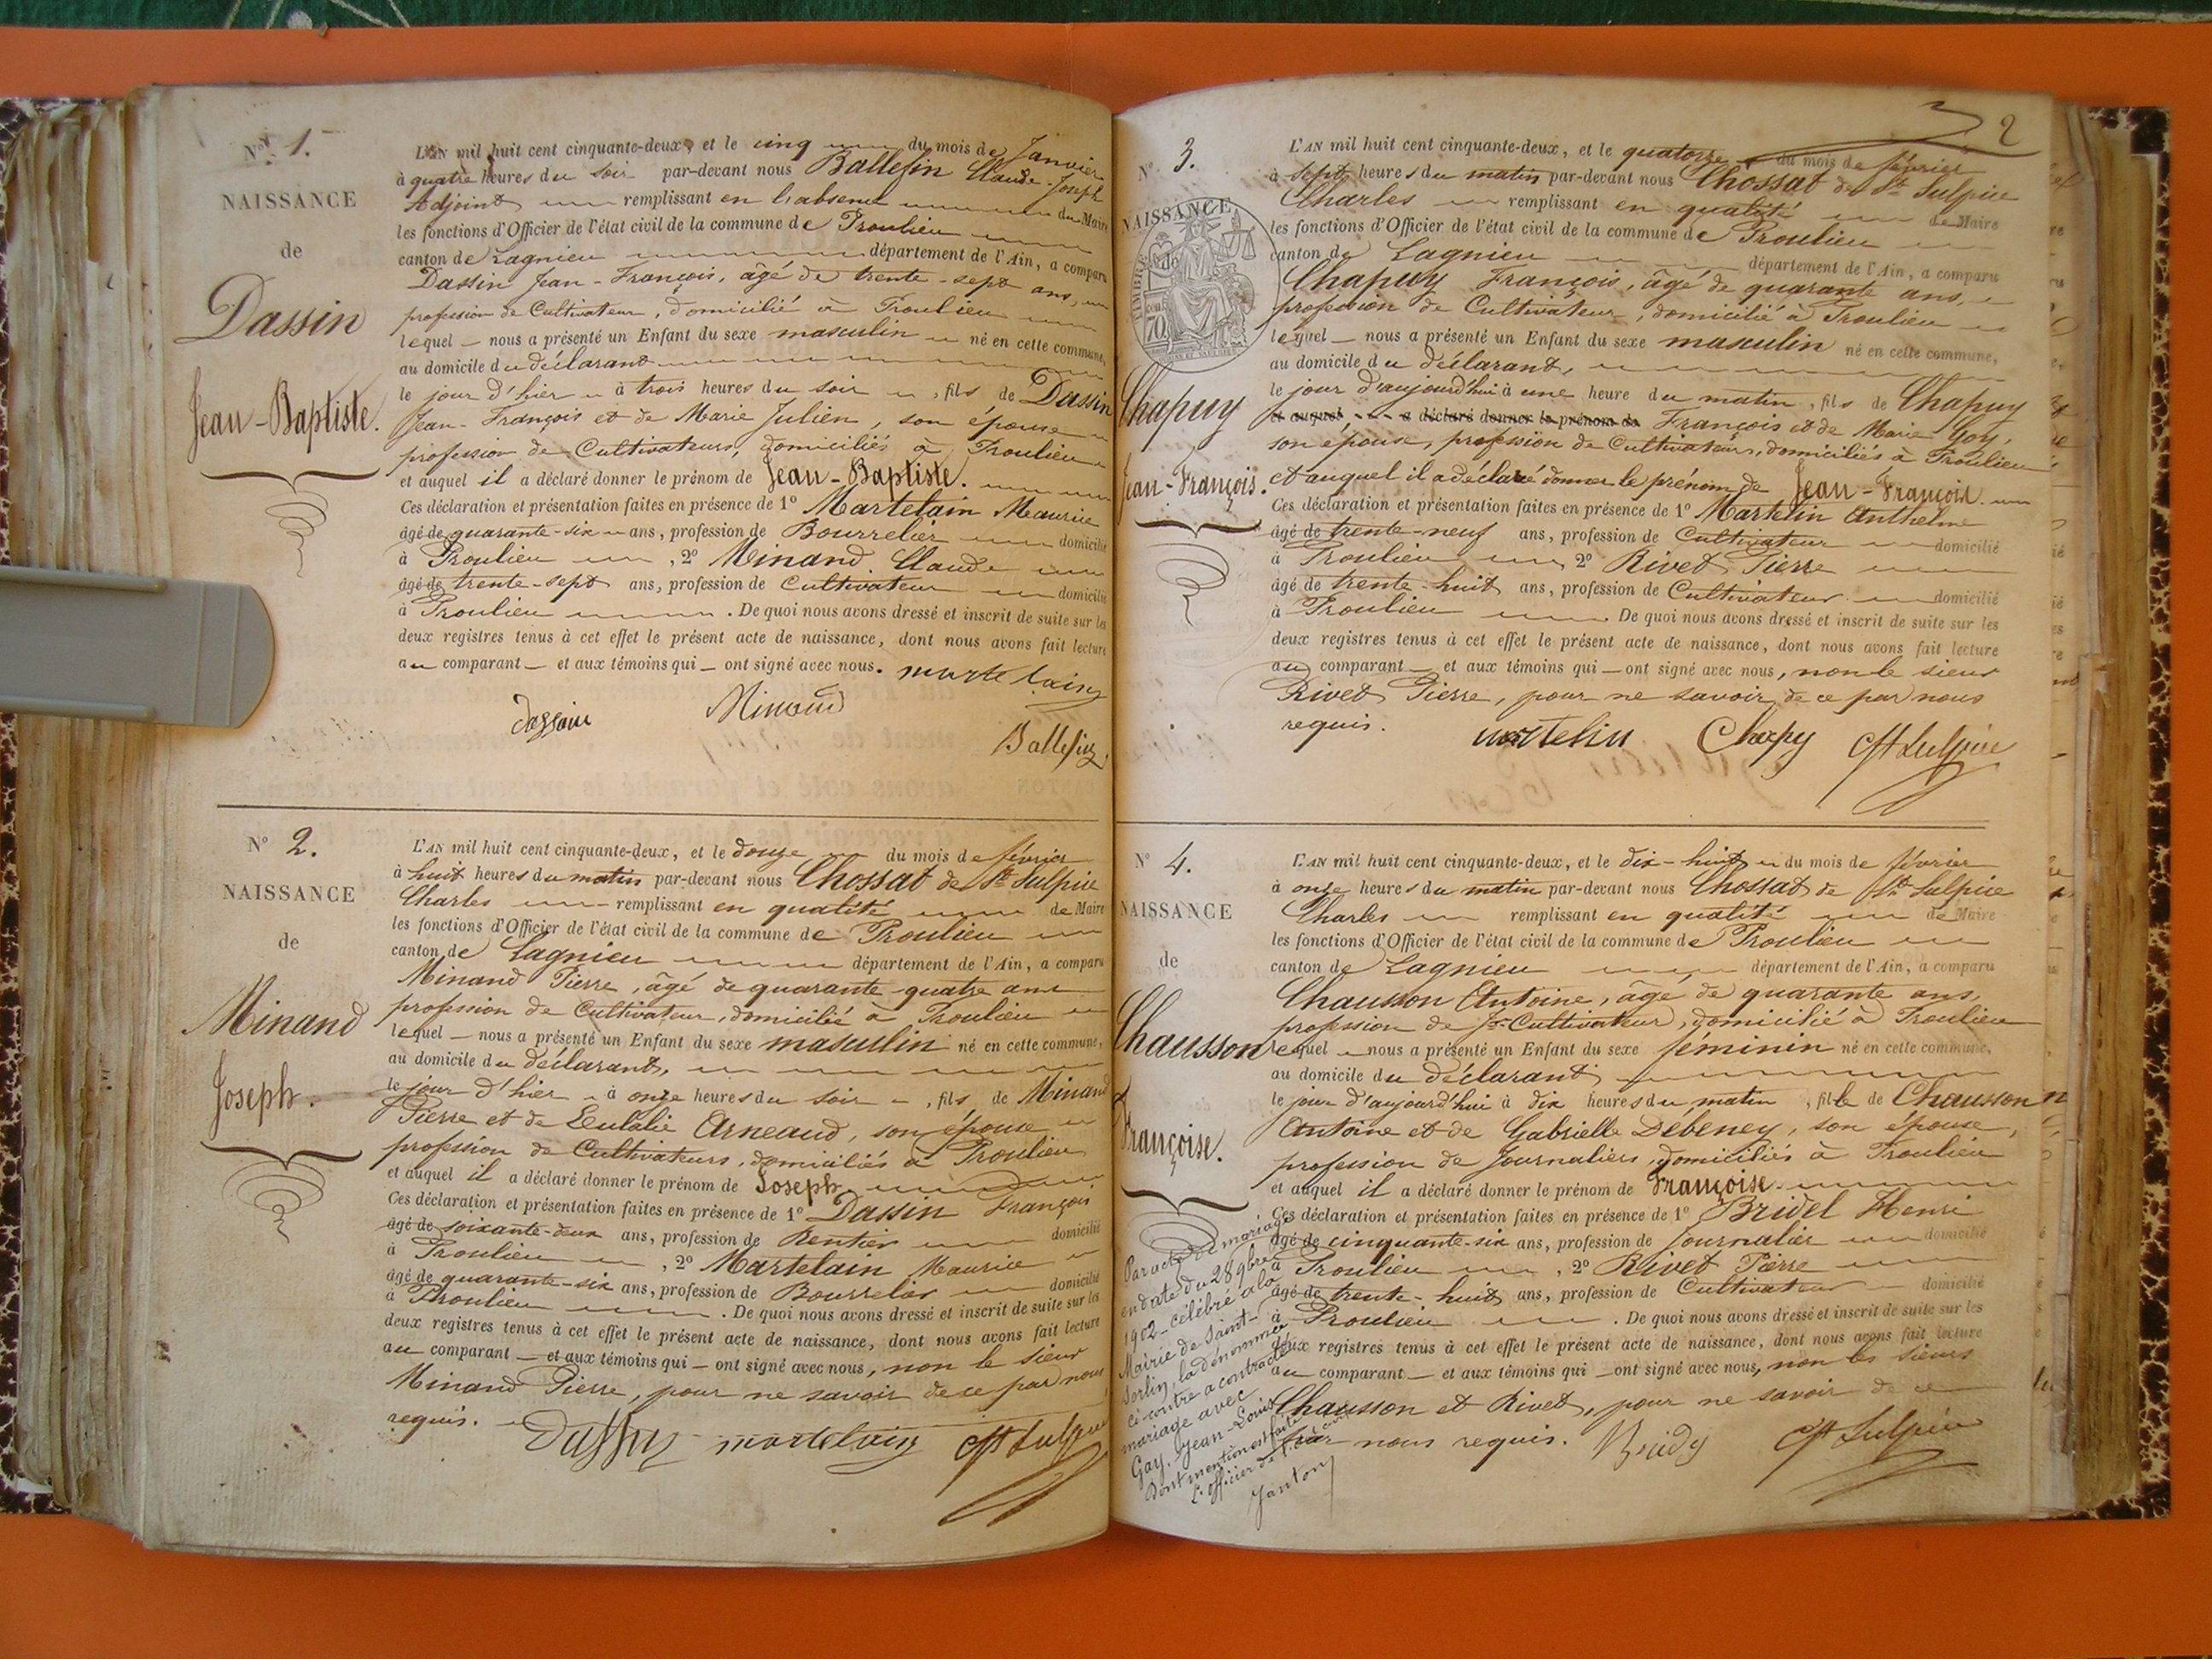 N° 1.
NAISSANCE
de
Dassin
Jean-Baptiste.
L'AN mil huit cent cinquante-deux, et le cinq du mois de Janvier
à quatre heures du soir par-devant nous Ballefin Claude-Joseph
Adjoint remplissant en l'absence du Maire
les fonctions d'Officier de l'état civil de la commune de Proulieu
canton de Lagnieu département de l'Ain, a comparu
Dassin Jean-François, âgé de trente-sept ans,
profession de Cultivateur, domicilié à Proulieu
lequel nous a présenté un Enfant du sexe masculin né en cette commune,
au domicile du déclarant
le jour d'hier à trois heures du soir, fils de Dassin
Jean-François et de Marie Julien, son épouse
profession de Cultivateurs, domiciliés à Proulieu
et auquel il a déclaré donner le prénom de Jean-Baptiste.
Ces déclaration et présentation faites en présence de 1° Martelain Maurice
âgé de quarante-six ans, profession de Bourrelier domicilié
à Proulieu, 2° Minand Claude
âgé de trente-sept ans, profession de Cultivateur domicilié
à Proulieu. De quoi nous avons dressé et inscrit de suite sur les
deux registres tenus à cet effet le présent acte de naissance, dont nous avons fait lecture
au comparant et aux témoins qui ont signé avec nous. martelain
dassin Minand
Ballefin
N° 2.
NAISSANCE
de
Minand
Joseph.
L'AN mil huit cent cinquante-deux, et le douze du mois de février
à huit heures du matin par-devant nous Chossat de St Sulpice
Charles remplissant en qualité de Maire
les fonctions d'Officier de l'état civil de la commune de Proulieu
canton de Lagnieu département de l'Ain, a comparu
Minand Pierre, âgé de quarante-quatre ans
profession de Cultivateur, domicilié à Proulieu
lequel nous a présenté un Enfant du sexe masculin né en cette commune,
au domicile du déclarant,
le jour d'hier à onze heures du soir, fils de Minand
Pierre et de Eulalie Arneaud, son épouse
profession de Cultivateurs, domiciliés à Proulieu
et auquel il a déclaré donner le prénom de Joseph
Ces déclaration et présentation faites en présence de 1° Dassin François
âgé de soixante-deux ans, profession de Rentier domicilié
à Proulieu, 2° Martelain Maurice
âgé de quarante-six ans, profession de Bourrelier domicilié
à Proulieu. De quoi nous avons dressé et inscrit de suite sur les
deux registres tenus à cet effet le présent acte de naissance, dont nous avons fait lecture
au comparant et aux témoins qui ont signé avec nous, non le sieur
Minand Pierre, pour ne savoir de ce par nous
requis.
Dassin martelain Cst Sulpice
2
N° 3.
NAISSANCE
de
TIMBRE
70
Chapuy
Jean-François.
L'AN mil huit cent cinquante-deux, et le quatorze du mois de février
à sept heures du matin par-devant nous Chossat de St Sulpice
Charles remplissant en qualité de Maire
les fonctions d'Officier de l'état civil de la commune de Proulieu
canton de Lagnieu département de l'Ain, a comparu
Chapuy François, âgé de quarante ans,
profession de Cultivateur, domicilié à Proulieu
lequel nous a présenté un Enfant du sexe masculin né en cette commune,
au domicile du déclarant,
le jour d'aujourd'hui à une heure du matin, fils de Chapuy
et auquel a déclaré donner le prénom de François et de Marie Goy,
son épouse, profession de Cultivateurs, domiciliés à Proulieu
et auquel il a déclaré donner le prénom de Jean-François.
Ces déclaration et présentation faites en présence de 1° Martelin Anthelme
âgé de trente-neuf ans, profession de Cultivateur domicilié
à Proulieu, 2° Rivet Pierre
âgé de trente-huit ans, profession de Cultivateur domicilié
à Proulieu. De quoi nous avons dressé et inscrit de suite sur les
deux registres tenus à cet effet le présent acte de naissance, dont nous avons fait lecture
au comparant et aux témoins qui ont signé avec nous, non le sieur
Rivet Pierre, pour ne savoir, de ce par nous
requis.
martelin Chapy Cst Sulpice
N° 4.
NAISSANCE
de
Chausson
Françoise.
L'AN mil huit cent cinquante-deux, et le dix-huit du mois de février
à onze heures du matin par-devant nous Chossat de St Sulpice
Charles remplissant en qualité de Maire
les fonctions d'Officier de l'état civil de la commune de Proulieu
canton de Lagnieu département de l'Ain, a comparu
Chausson Antoine, âgé de quarante ans,
profession de Cultivateur, domicilié à Proulieu
lequel nous a présenté un Enfant du sexe féminin né en cette commune,
au domicile du déclarant
le jour d'aujourd'hui à dix heures du matin, fille de Chausson
Antoine et de Gabrielle Débeney, son épouse,
profession de Journaliers, domiciliés à Proulieu
et auquel il a déclaré donner le prénom de Françoise.
Ces déclaration et présentation faites en présence de 1° Bridel Henri
âgé de cinquante-six ans, profession de Journalier domicilié
à Proulieu, 2° Rivet Pierre
âgé de trente-huit ans, profession de Cultivateur domicilié
à Proulieu. De quoi nous avons dressé et inscrit de suite sur les
deux registres tenus à cet effet le présent acte de naissance, dont nous avons fait lecture
au comparant et aux témoins qui ont signé avec nous, non les sieurs
Chausson et Rivet, pour ne savoir de ce
par nous requis.
Cst Sulpice
Par acte de mariage
en date du 28 9bre
1902 célébré à la
Mairie de Saint-
Sorlin, la dénommée
ci-contre a contracté
mariage avec
Gay, Jean-Louis
Dont mention est faite
L'officier de l'état civil
Janton